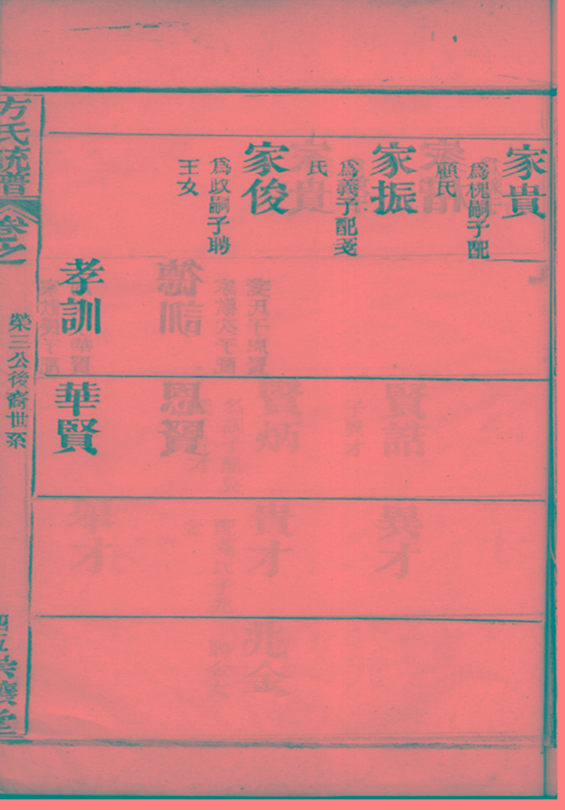 家貴
為槐嗣子配
顧氏
家振
為義子配戔
氏
家俊
為政嗣子聘
王女
孝訓
華賢
方氏統譜
卷之
榮三公後裔世系